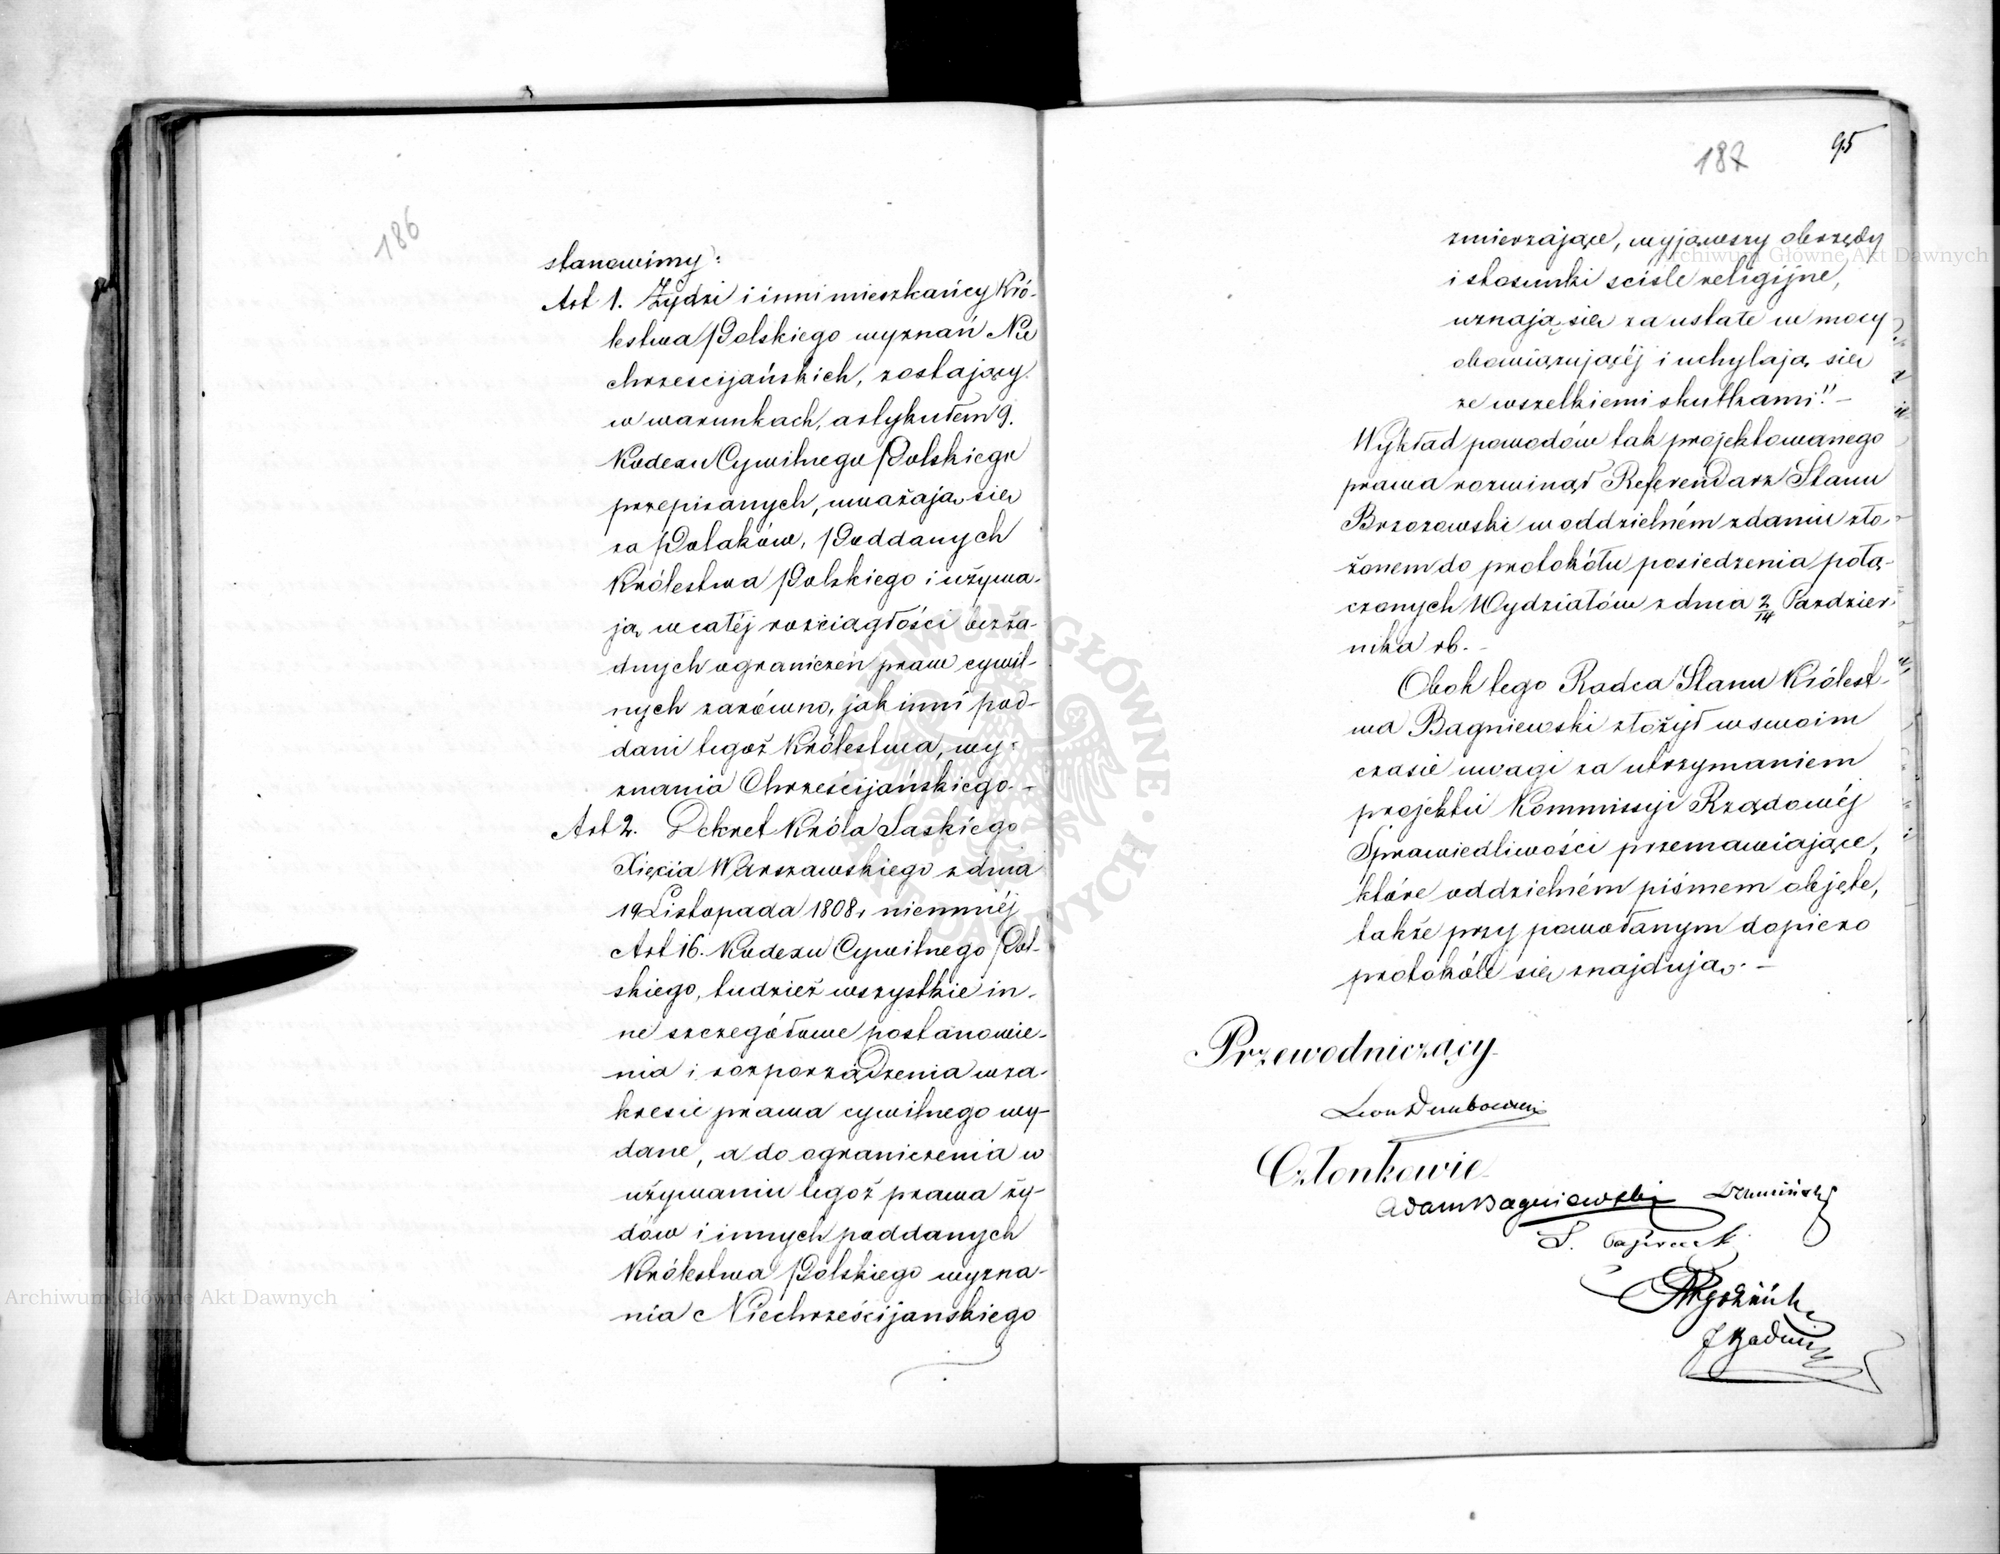 186
stanowimy:
Art 1. Żydzi i inni mieszkańcy Kró-
lestwa Polskiego wyznań Nie
chrześcijańskich, zostający
w warunkach, artykułem 9.
Kodexu Cywilnego Polskiego
przepisanych, uważają się
za Polaków, Poddanych
Królestwa Polskiego i używa-
ją w całéj rozciągłości bez ża-
dnych ograniczeń praw cywil-
nych zarówno, jak inni pod-
dani tegoż Królestwa, wy-
znania Chrześcijańskiego. -
Art 2. Dekret Króla Saskiego
Xięcia Warszawskiego z dnia
19 Listopada 1808, niemniéj
Art 16. Kodexu Cywilnego Pol-
skiego, tudzież wszystkie in-
ne szczegółowe postanowie-
nia i rozporządzenia w za-
kresie prawa cywilnego wy-
dane, a do ograniczenia w
używaniu tegoż prawa ży-
dów i innych poddanych
Królestwa Polskiego wyzna-
nia Niechrześcijanskiego
187
95
zmierzające, wyjąwszy obrzędy
i stosunki scisle religijne,
uznają się za ustałe w mocy
obowiązującéj i uchylają się
ze wszelkiemi skutkami." -
Wykład powodów tak projektowanego
prawa rozwinął Referendarz Stanu
Brzozowski w oddzielném zdaniu zło-
żonem do protokółu posiedzenia połą-
czonych Wydziałów z dnia 2/14 Pazdzier-
nika rb. -
Obok tego Radca Stanu Królest-
wa Bagniewski złożył w swoim
czasie uwagi za utrzymaniem
projektu Kommissyi Rządowéj
Sprawiedliwości przemawiające,
które oddzielném pismem objęte,
także przy powołanym dopiero
protokóle się znajdują. -
Przewodniczący
Leon Dembowski
Członkowie
Adam Bagniewski
Archiwum Główne Akt Dawnych
Archiwum Główne Akt Dawnych
ARCHIWUM GŁÓWNE AKT DAWNYCH